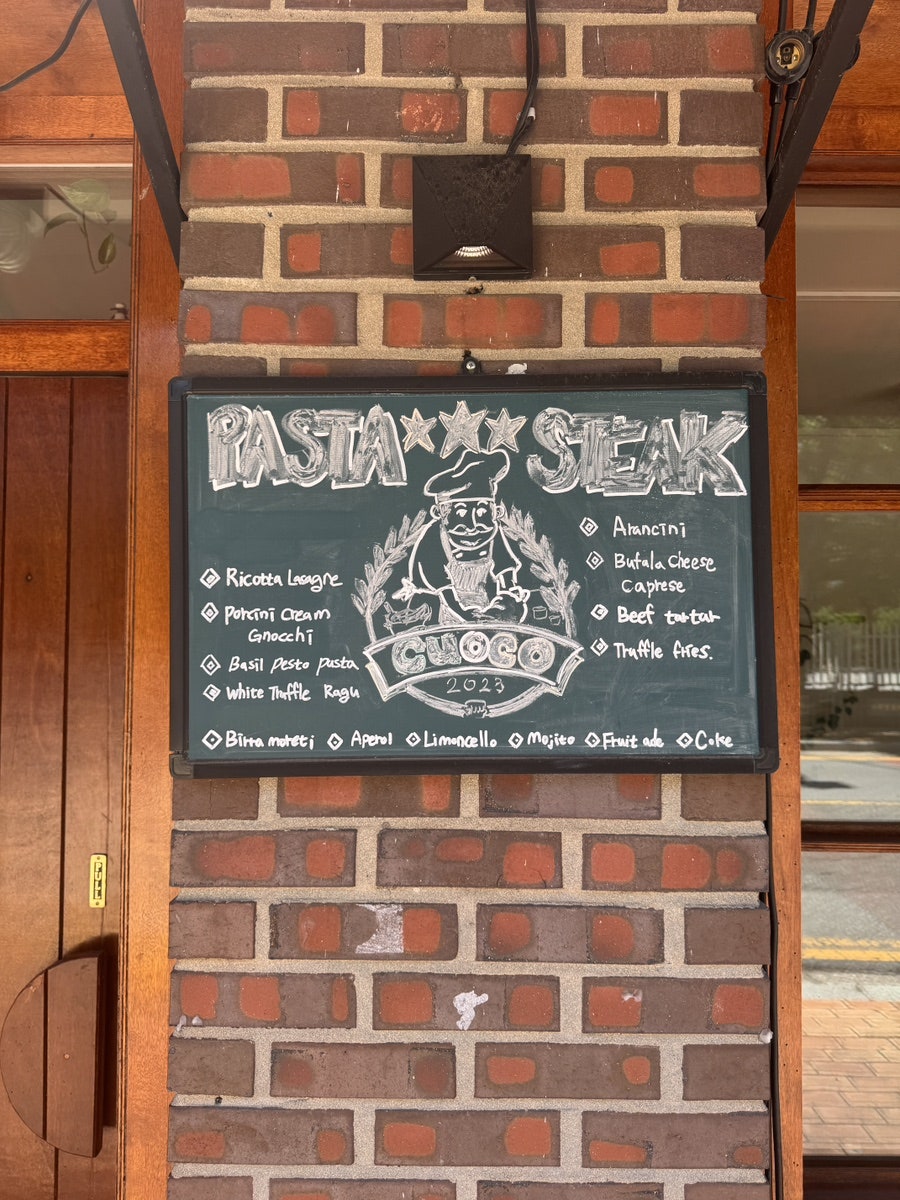 PASTA STEAK
Ricotta Lasagne
Porcini Cream
Gnocchi
Basil pesto pasta
White Truffle Ragu
Arancini
Bufala Cheese
Caprese
Beef tartar
Truffle fires.
CUOCO
2023
Birra moreti Aperol Limoncello Mojito Fruit ade Coke
PULL